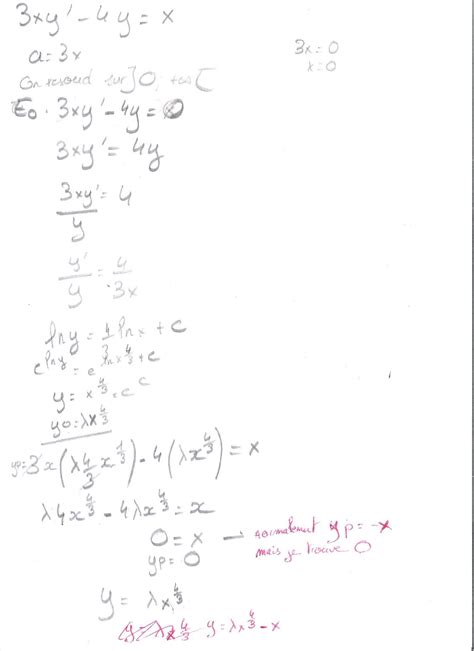 3xy' - 4y = x
a = 3x
3x = 0
x = 0
On resoud sur ]0, +∞[
E0 · 3xy' - 4y = 0
3xy' = 4y
3xy'/y = 4
y'/y = 4/3x
ln y = 4/3 ln x + c
e^(ln y) = e^(ln x^(4/3) + c)
y = x^(4/3) · e^c
y0 = λx^(4/3)
yp = 3x(λ 4/3 x^(1/3)) - 4(λx^(4/3)) = x
λ4x^(4/3) - 4λx^(4/3) = x
0 = x → normalement yp = -x
mais je trouve 0
yp = 0
y = λx^(4/3)
y = λx^(4/3) y = λx^(4/3) - x